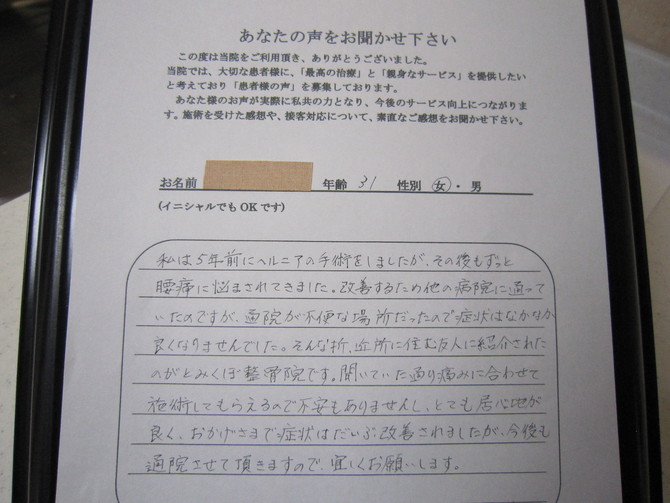 あなたの声をお聞かせ下さい
この度は当院をご利用頂き、ありがとうございました。
当院では、大切な患者様に、「最高の治療」と「親身なサービス」を提供したい
と考えており「患者様の声」を募集しております。
あなた様のお声が実際に私共の力となり、今後のサービス向上につながりま
す。施術を受けた感想や、接客対応について、素直なご感想をお聞かせ下さい。
お名前 年齢 31 性別 女・男
(イニシャルでもOKです)
私は5年前にヘルニアの手術をしましたが、その後もずっと
腰痛に悩まされてきました。改善するため他の病院に通って
いたのですが、通院が不便な場所だったので症状はなかなか
良くなりませんでした。そんな折、近所に住む友人に紹介された
のがとみくぼ整骨院です。聞いていた通り痛みに合わせて
施術してもらえるので不安もありませんし、とても居心地が
良く、おかげさまで症状はだいぶ改善されましたが、今後も
通院させて頂きますので、宜しくお願いします。